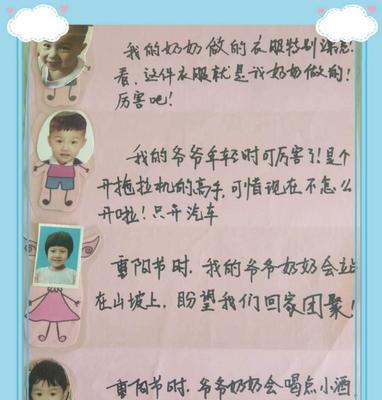 我的奶奶做的衣服特别漂亮!
看,这件衣服就是我奶奶做的!
厉害吧!
我的爷爷年轻时可厉害了!是个
开拖拉机的高手,可惜现在不怎么
开啦!只开汽车
重阳节时,我的爷爷奶奶会站
在山坡上,盼望我们回家团聚!
重阳节时,爷爷奶奶会喝点小酒